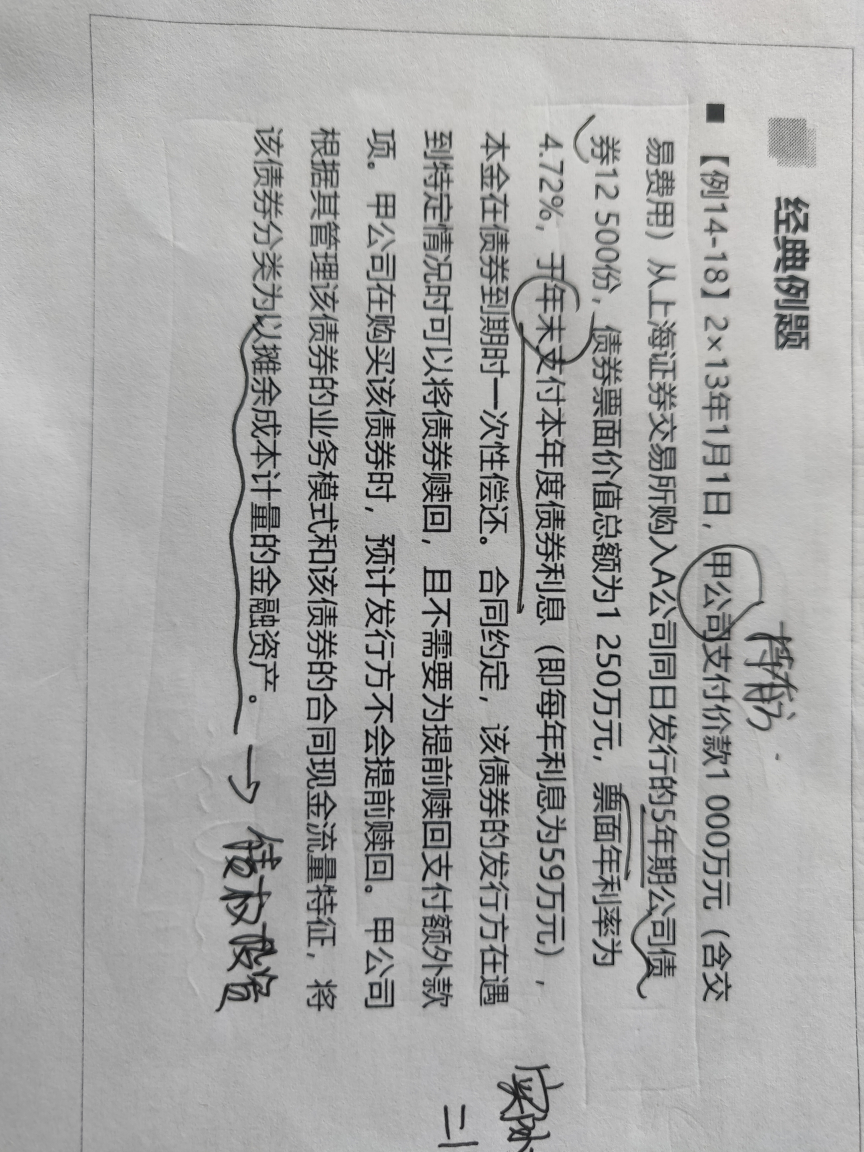 经典例题
■ 【例14-18】2×13年1月1日，甲公司支付价款1 000万元（含交
易费用）从上海证券交易所购入A公司同日发行的5年期公司债
券12 500份，债券票面价值总额为1 250万元，票面年利率为
4.72%，于年末支付本年度债券利息（即每年利息为59万元），
本金在债券到期时一次性偿还。合同约定，该债券的发行方在遇
到特定情况时可以将债券赎回，且不需要为提前赎回支付额外款
项。甲公司在购买该债券时，预计发行方不会提前赎回。甲公司
根据其管理该债券的业务模式和该债券的合同现金流量特征，将
该债券分类为以摊余成本计量的金融资产。
持有方
→ 债权投资
实际